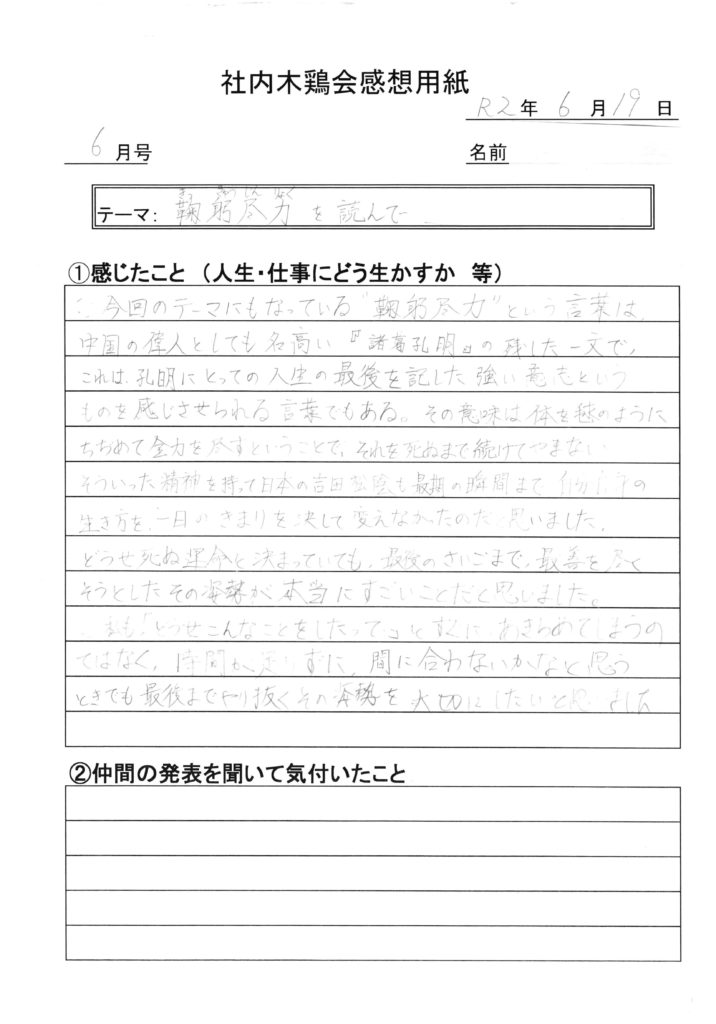 社内木鶏会感想用紙
R2年 6月19日
6月号
名前
きっ きゅう じん りょく
テーマ: 鞠躬尽力 を読んで
①感じたこと (人生・仕事にどう生かすか 等)
今回のテーマにもなっている"鞠躬尽力"という言葉は、
中国の偉人としても名高い『諸葛孔明』の残した一文で、
これは、孔明にとっての人生の最後を記した強い意志という
ものを感じさせられる言葉でもある。その意味は体を毬のように
ちぢめて全力を尽すということで、それを死ぬまで続けてやまない
そういった精神を持って日本の吉田松陰も最期の瞬間まで自分の
生き方を、一日のきまりを決して変えなかったのだと思いました。
どうせ死ぬ運命と決まっていても、最後のさいごまで、最善を尽く
そうとしたその姿勢が本当にすごいことだと思いました。
私も「どうせこんなことをしたって」とすぐに、あきらめてしまうの
ではなく、時間が足りずに、間に合わないかなと思う
ときでも最後までやり抜くその姿勢を大切にしたいと思いました
②仲間の発表を聞いて気付いたこと